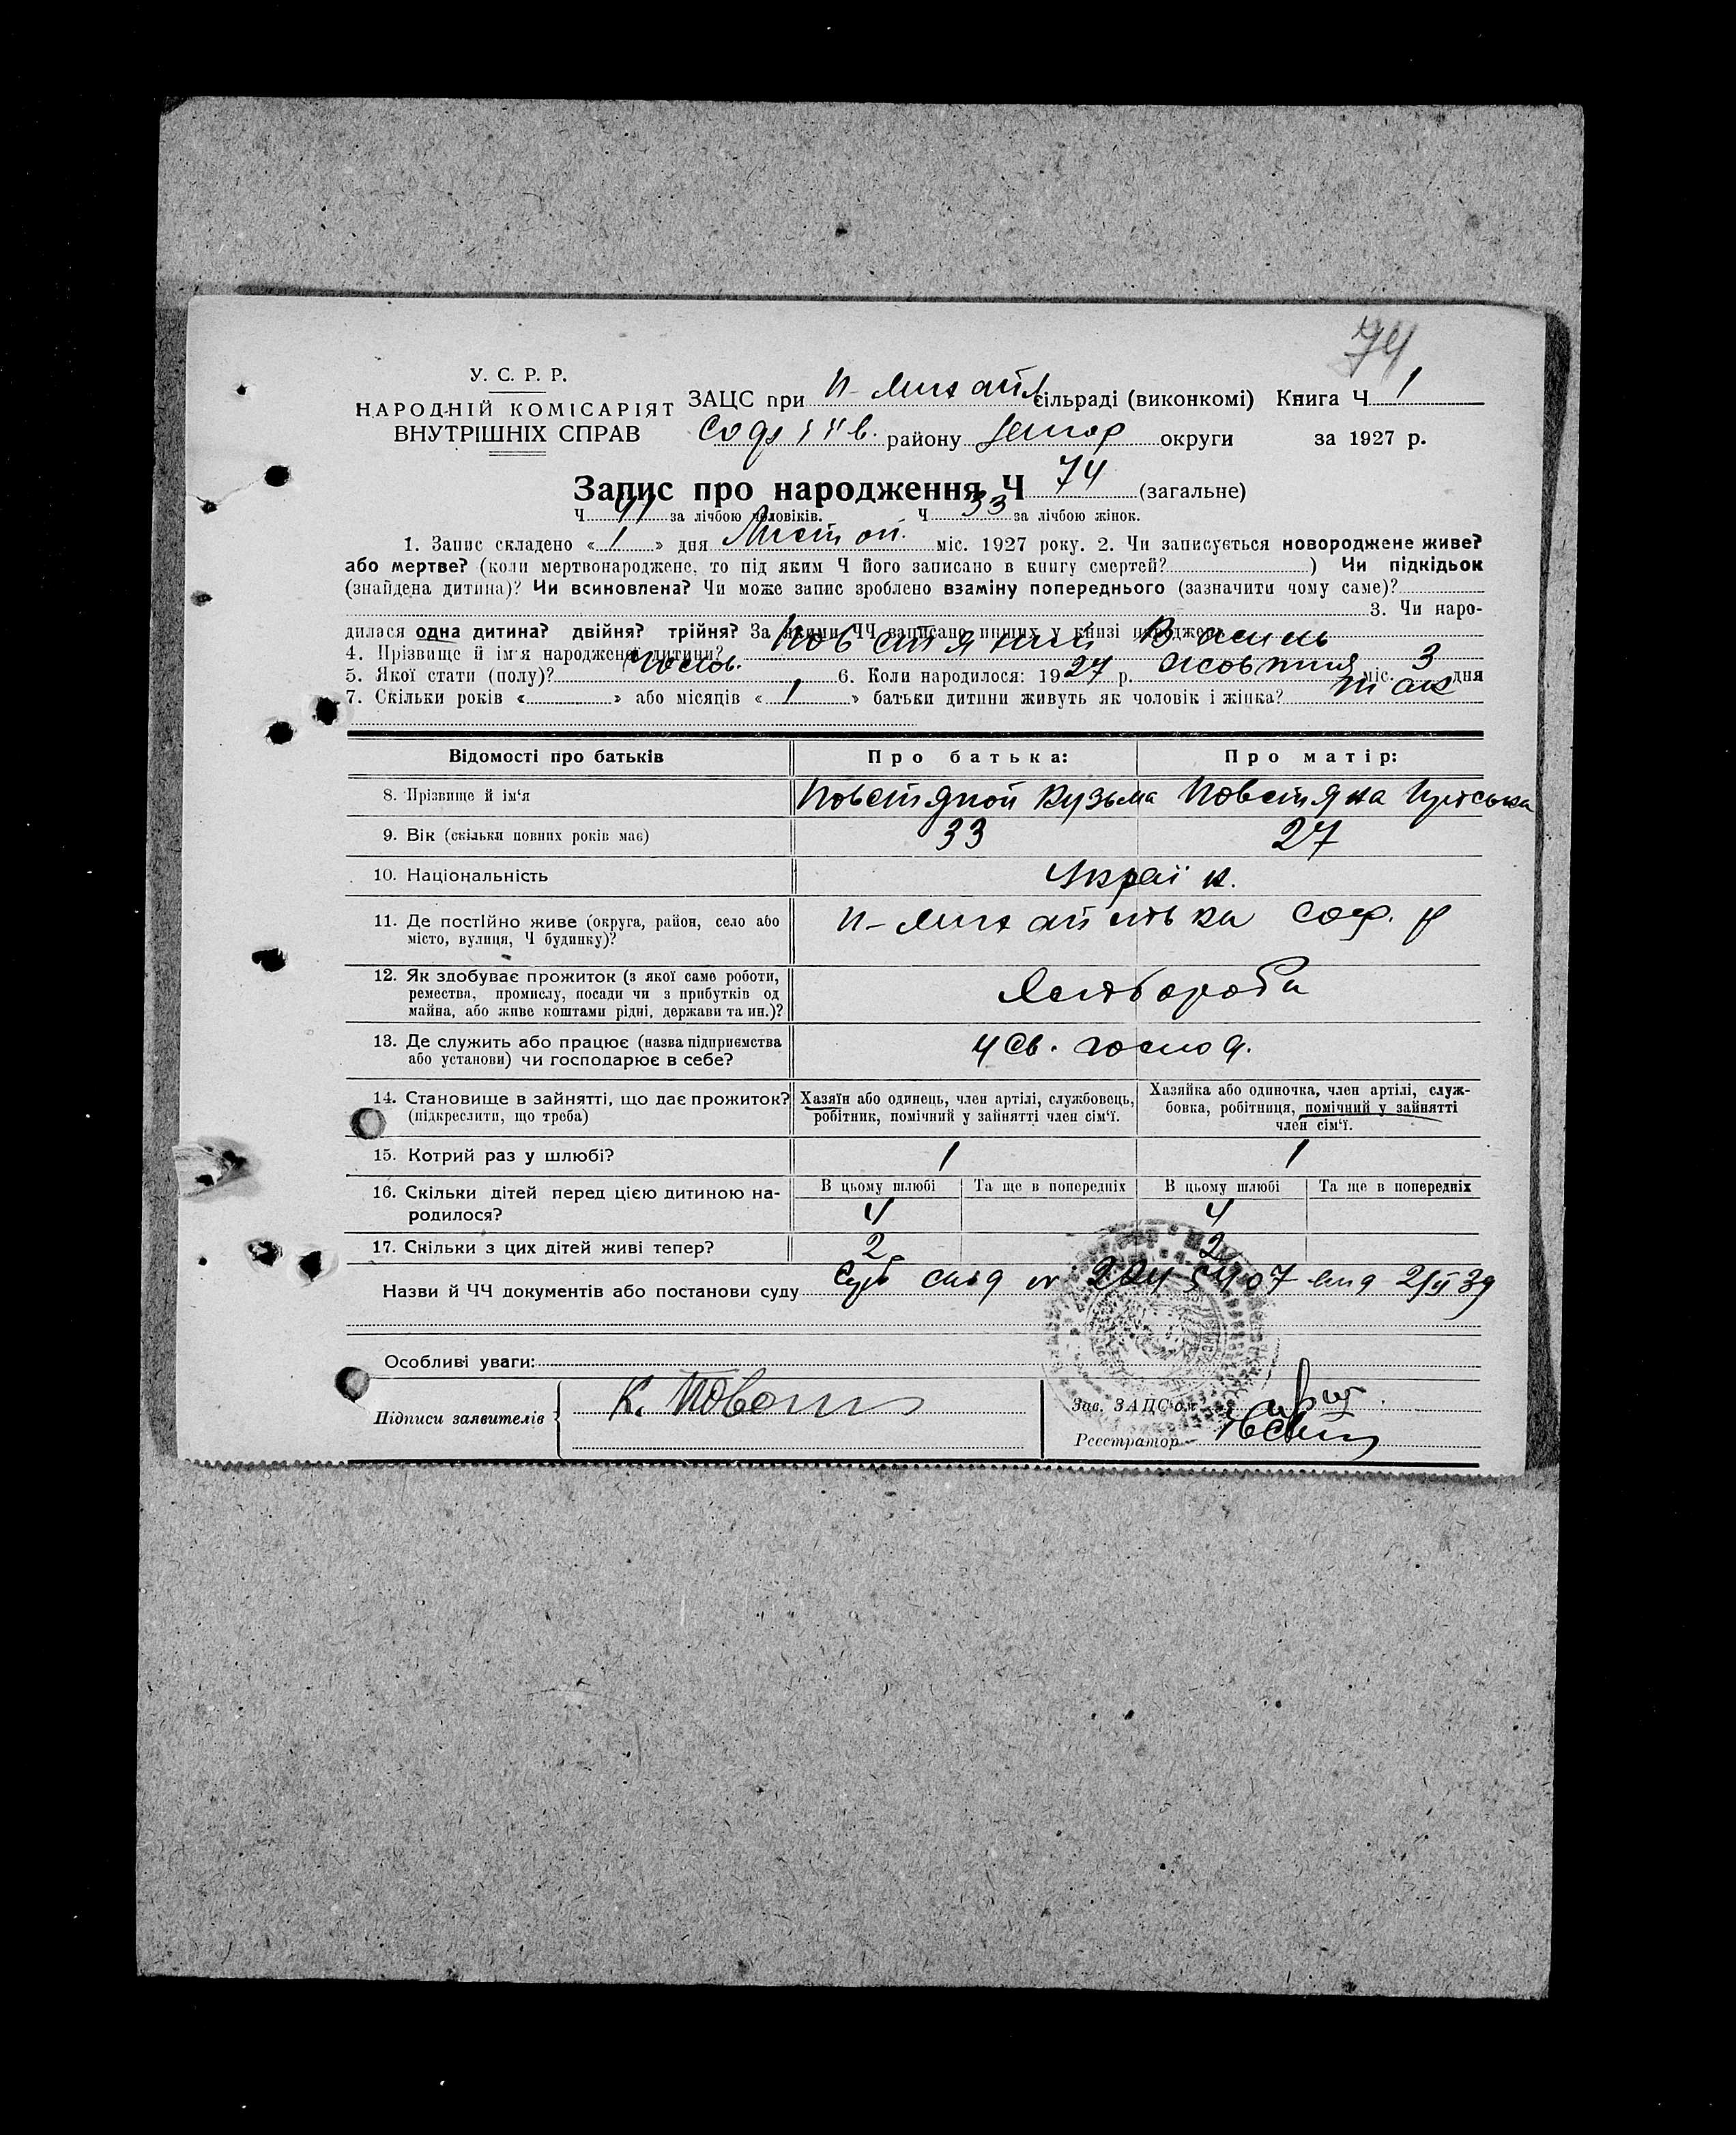 74
У. С. Р. Р.
НАРОДНІЙ КОМІСАРІЯТ
ВНУТРІШНІХ СПРАВ
ЗАЦС при Н-Михайл сільраді (виконкомі) Книга Ч 1
району округи за 1927 р.
Запис про народження Ч 74 (загальне)
Ч 41 за лічбою чоловіків. Ч 33 за лічбою жінок.
1. Запис складено « 1 » дня Листоп. міс. 1927 року. 2. Чи записується новороджене живе?
або мертве? (коли мертвонароджене, то під яким Ч його записано в книгу смертей? ) Чи підкідьок
(знайдена дитина)? Чи всиновлена? Чи може запис зроблено взаміну попереднього (зазначити чому саме)?
3. Чи наро-
дилася одна дитина? двійня? трійня? За якими ЧЧ записано инших у книзі народжень
4. Прізвище й ім'я народженої дитини? Повстяний Василь
5. Якої стати (полу)? чолов. 6. Коли народилося: 1927 р. жовтня міс. 3 дня
7. Скільки років « » або місяців « 1 » батьки дитини живуть як чоловік і жінка? так
Відомості про батьків Про батька: Про матір:
8. Прізвище й ім'я Повстяной Кузьма Повстяна
9. Вік (скільки повних років має) 33 27
10. Національність Украї н.
11. Де постійно живе (округа, район, село або
місто, вулиця, Ч будинку)?
Н-Михайлівка Соф. р
12. Як здобуває прожиток (з якої саме роботи,
ремества, промислу, посади чи з прибутків од
майна, або живе коштами рідні, держави та ин.)?
Хлібороби
13. Де служить або працює (назва підприємства
або установи) чи господарює в себе?
У св. госпо д.
14. Становище в зайнятті, що дає прожиток?
(підкреслити, що треба)
Хазяїн або одинець, член артілі, службовець,
робітник, помічний у зайнятті член сім'ї.
Хазяйка або одиночка, член артілі, служ-
бовка, робітниця, помічний у зайнятті
член сім'ї.
15. Котрий раз у шлюбі? 1 1
16. Скільки дітей перед цією дитиною на-
родилося?
В цьому шлюбі Та ще в попередніх В цьому шлюбі Та ще в попередніх
4 4
17. Скільки з цих дітей живі тепер? 2 2
Назви й ЧЧ документів або постанови суду
Особливі уваги:
Підписи заявителів К. Повстя
Зав. ЗАЦС'ом
Реєстратор